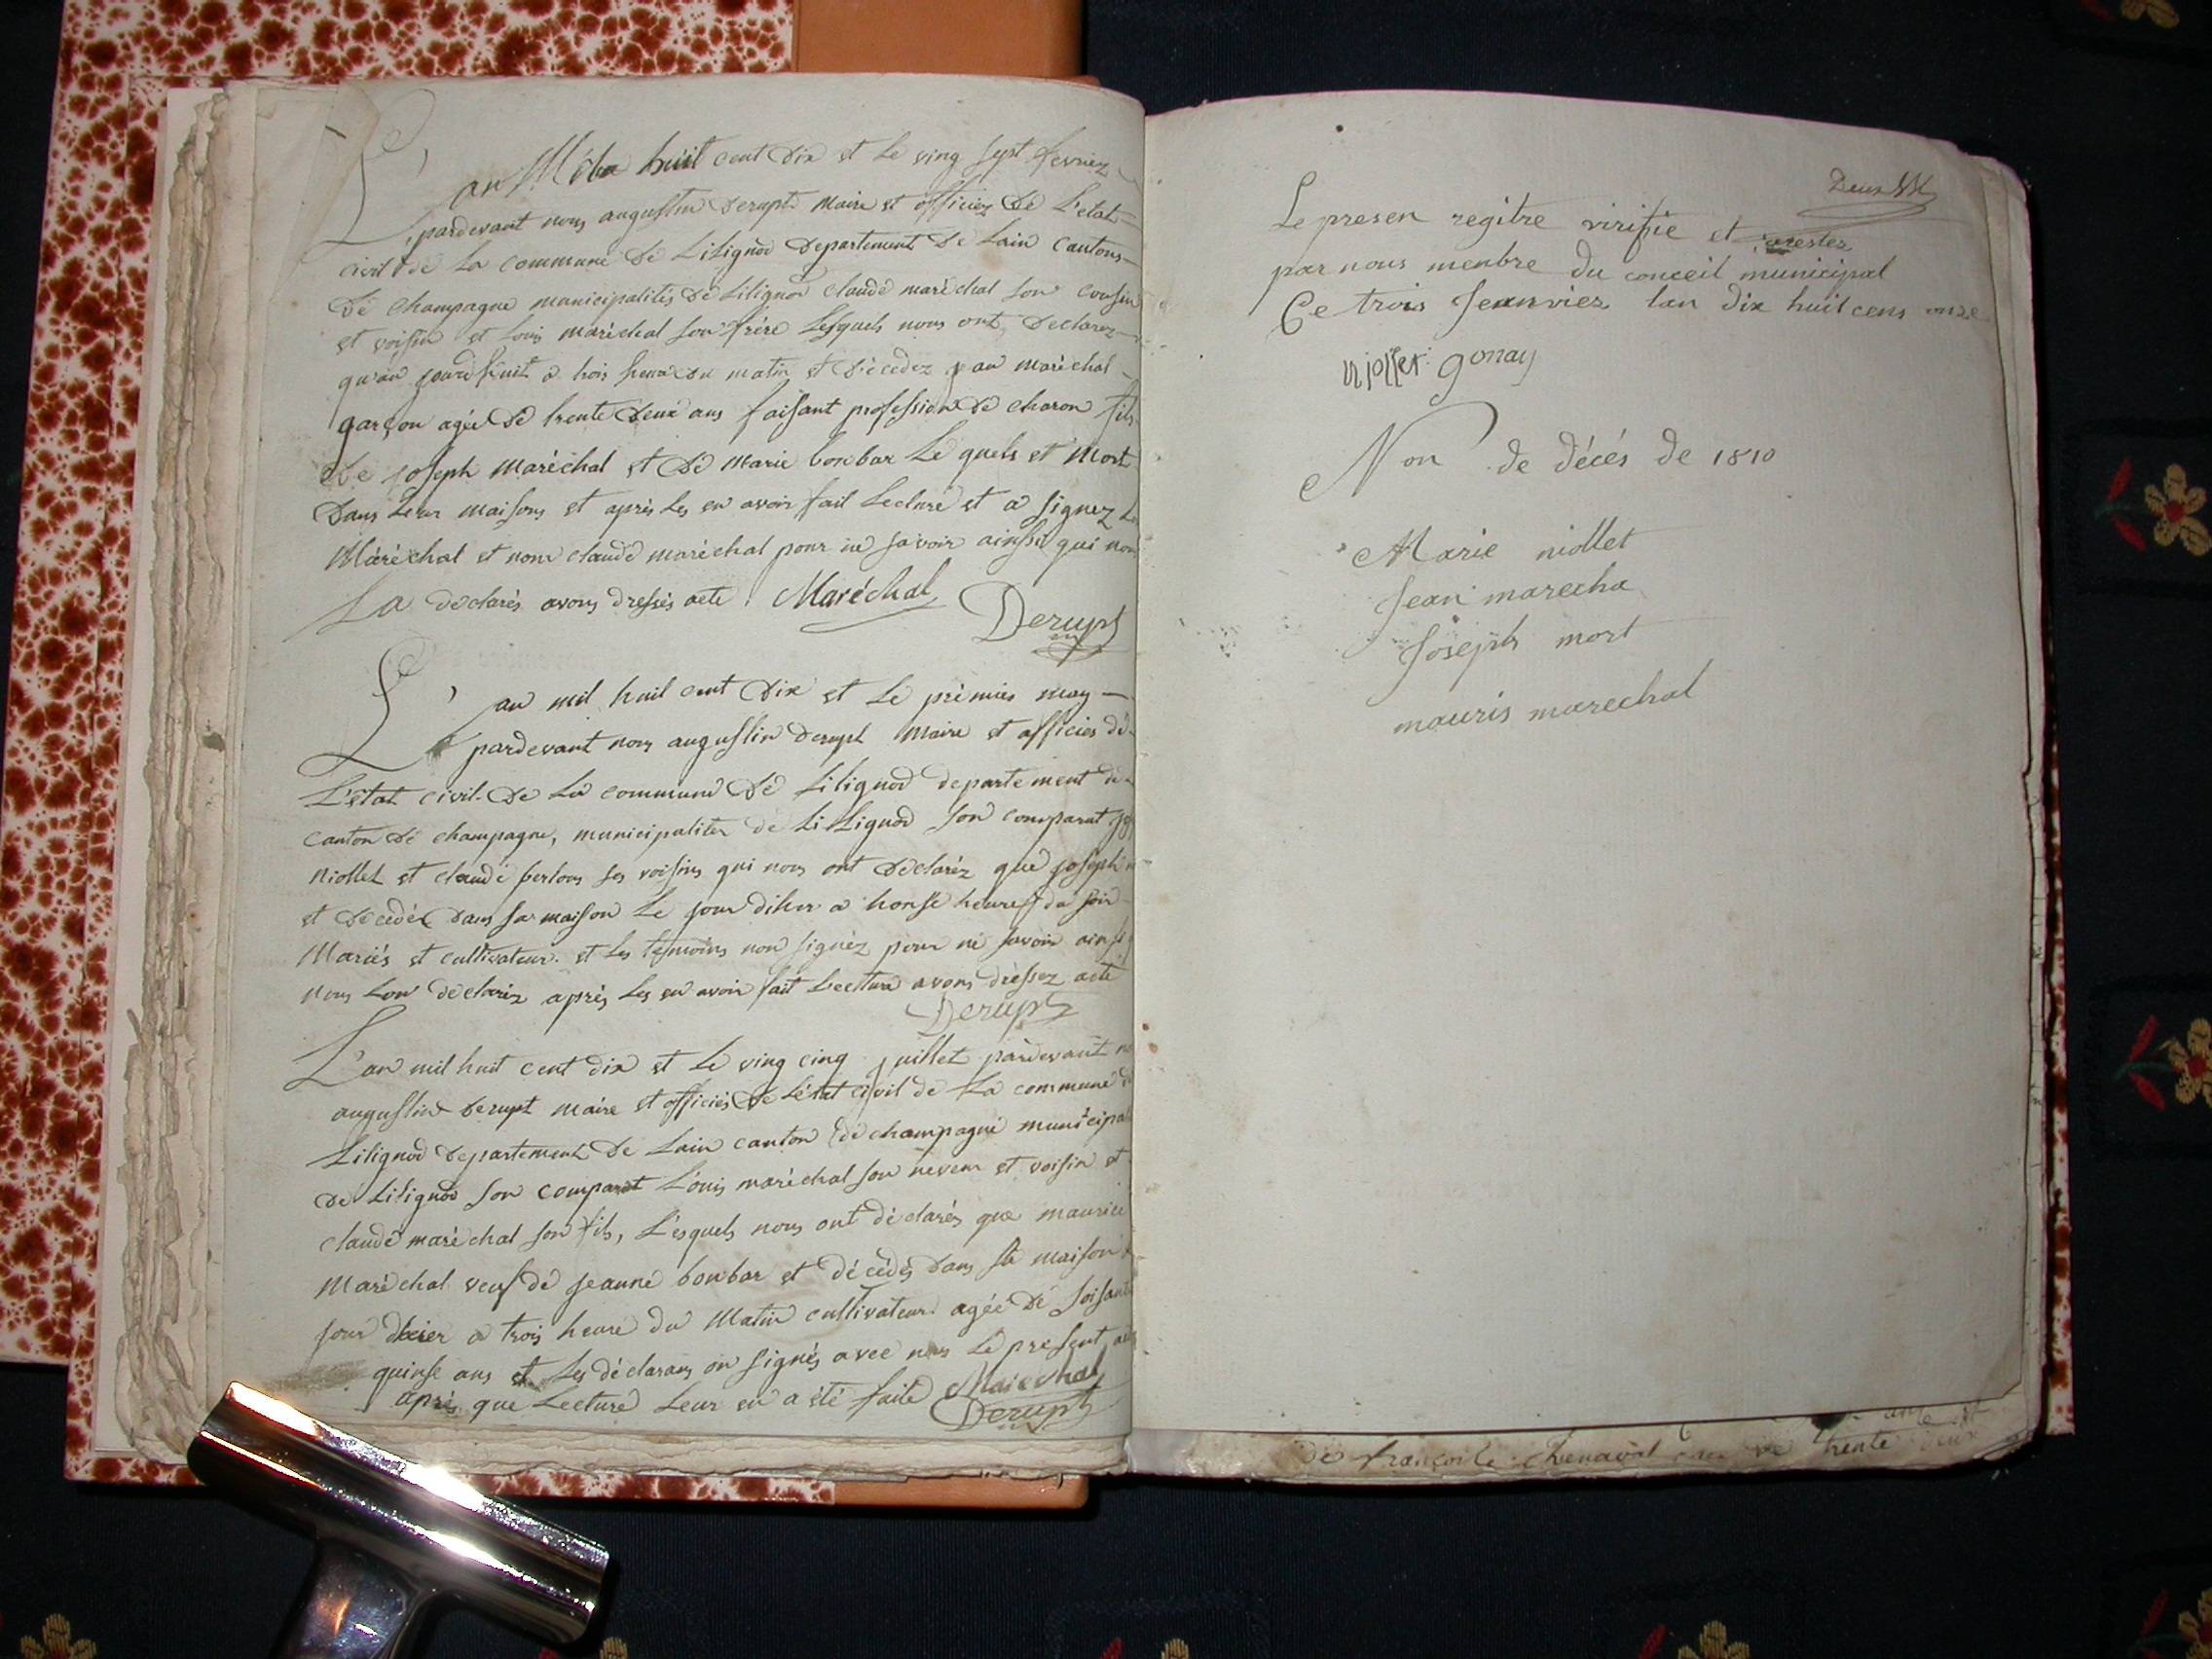 L'an Mil huit cent dix et le ving sept fevriez
pardevant nous augustin Derupt Maire et officiez de L'etat
civil de La commune de Lilignod departement de Lain cantons
de champagne municipalités de Lilignod claude maréchal son cousin
et voisin et Louis maréchal son frère Lesquels nous ont declarez
qu'au jourd'huit a trois heure du matin et décédez jean maréchal
garçon agée de trente deux ans faisant profession de charon fils
de joseph maréchal et de Marie bonbar Le quels et mort
dans Leur maisons et après Les en avoir fait Lecture et a signez
Maréchal et nom claude maréchal pour ne savoir ainsse qui nous
La déclarés avons dressés acte. Maréchal
Derupt
L'an mil huit cent dix et Le prémier may
pardevant nous augustin derupt Maire et officiés de
L'état civil de La commune de Lilignod departement de
canton de champagne, municipalitez de Lilignod son comparut
niollet et claude berlour ses voisins qui nous ont déclaréz que joseph
et décédéz dans sa maison Le jour diher a honse heures du soir
Mariés et cultivateur. et Les temoins non signéz pour ne savoir ainsi
nous Lon déclaréz après Les en avoir fait Lecture avons dressez acte
Derupt
L'an mil huit cent dix et Le ving cinq juillet pardevant
augustin derupt maire et officiés de L'état civil de La commune
Lilignod departement de Lain canton de champagne municipal
de Lilignod son comparet Louis maréchal son neveur et voisin et
claude maréchal son fils, Lesquels nous ont déclarés que maurice
Maréchal veuf de jeanne bonbar et décédés dans sa maison
jour dhier a trois heure du Matin cultivateur agée de soisante
quinse ans et Les déclarans on signés avec nous Le present
après que Lecture Leur en a été faite Marechal
Derupt
Le presen regitre virifie et arester
par nous menbre du conceil municipal
Ce trois Jeanvier lan dix huit cens onze
niollet gonay
Non de décés de 1810
Marie niollet
Jean marecha
Joseph mort
mauris marechal
de françoise trente deux